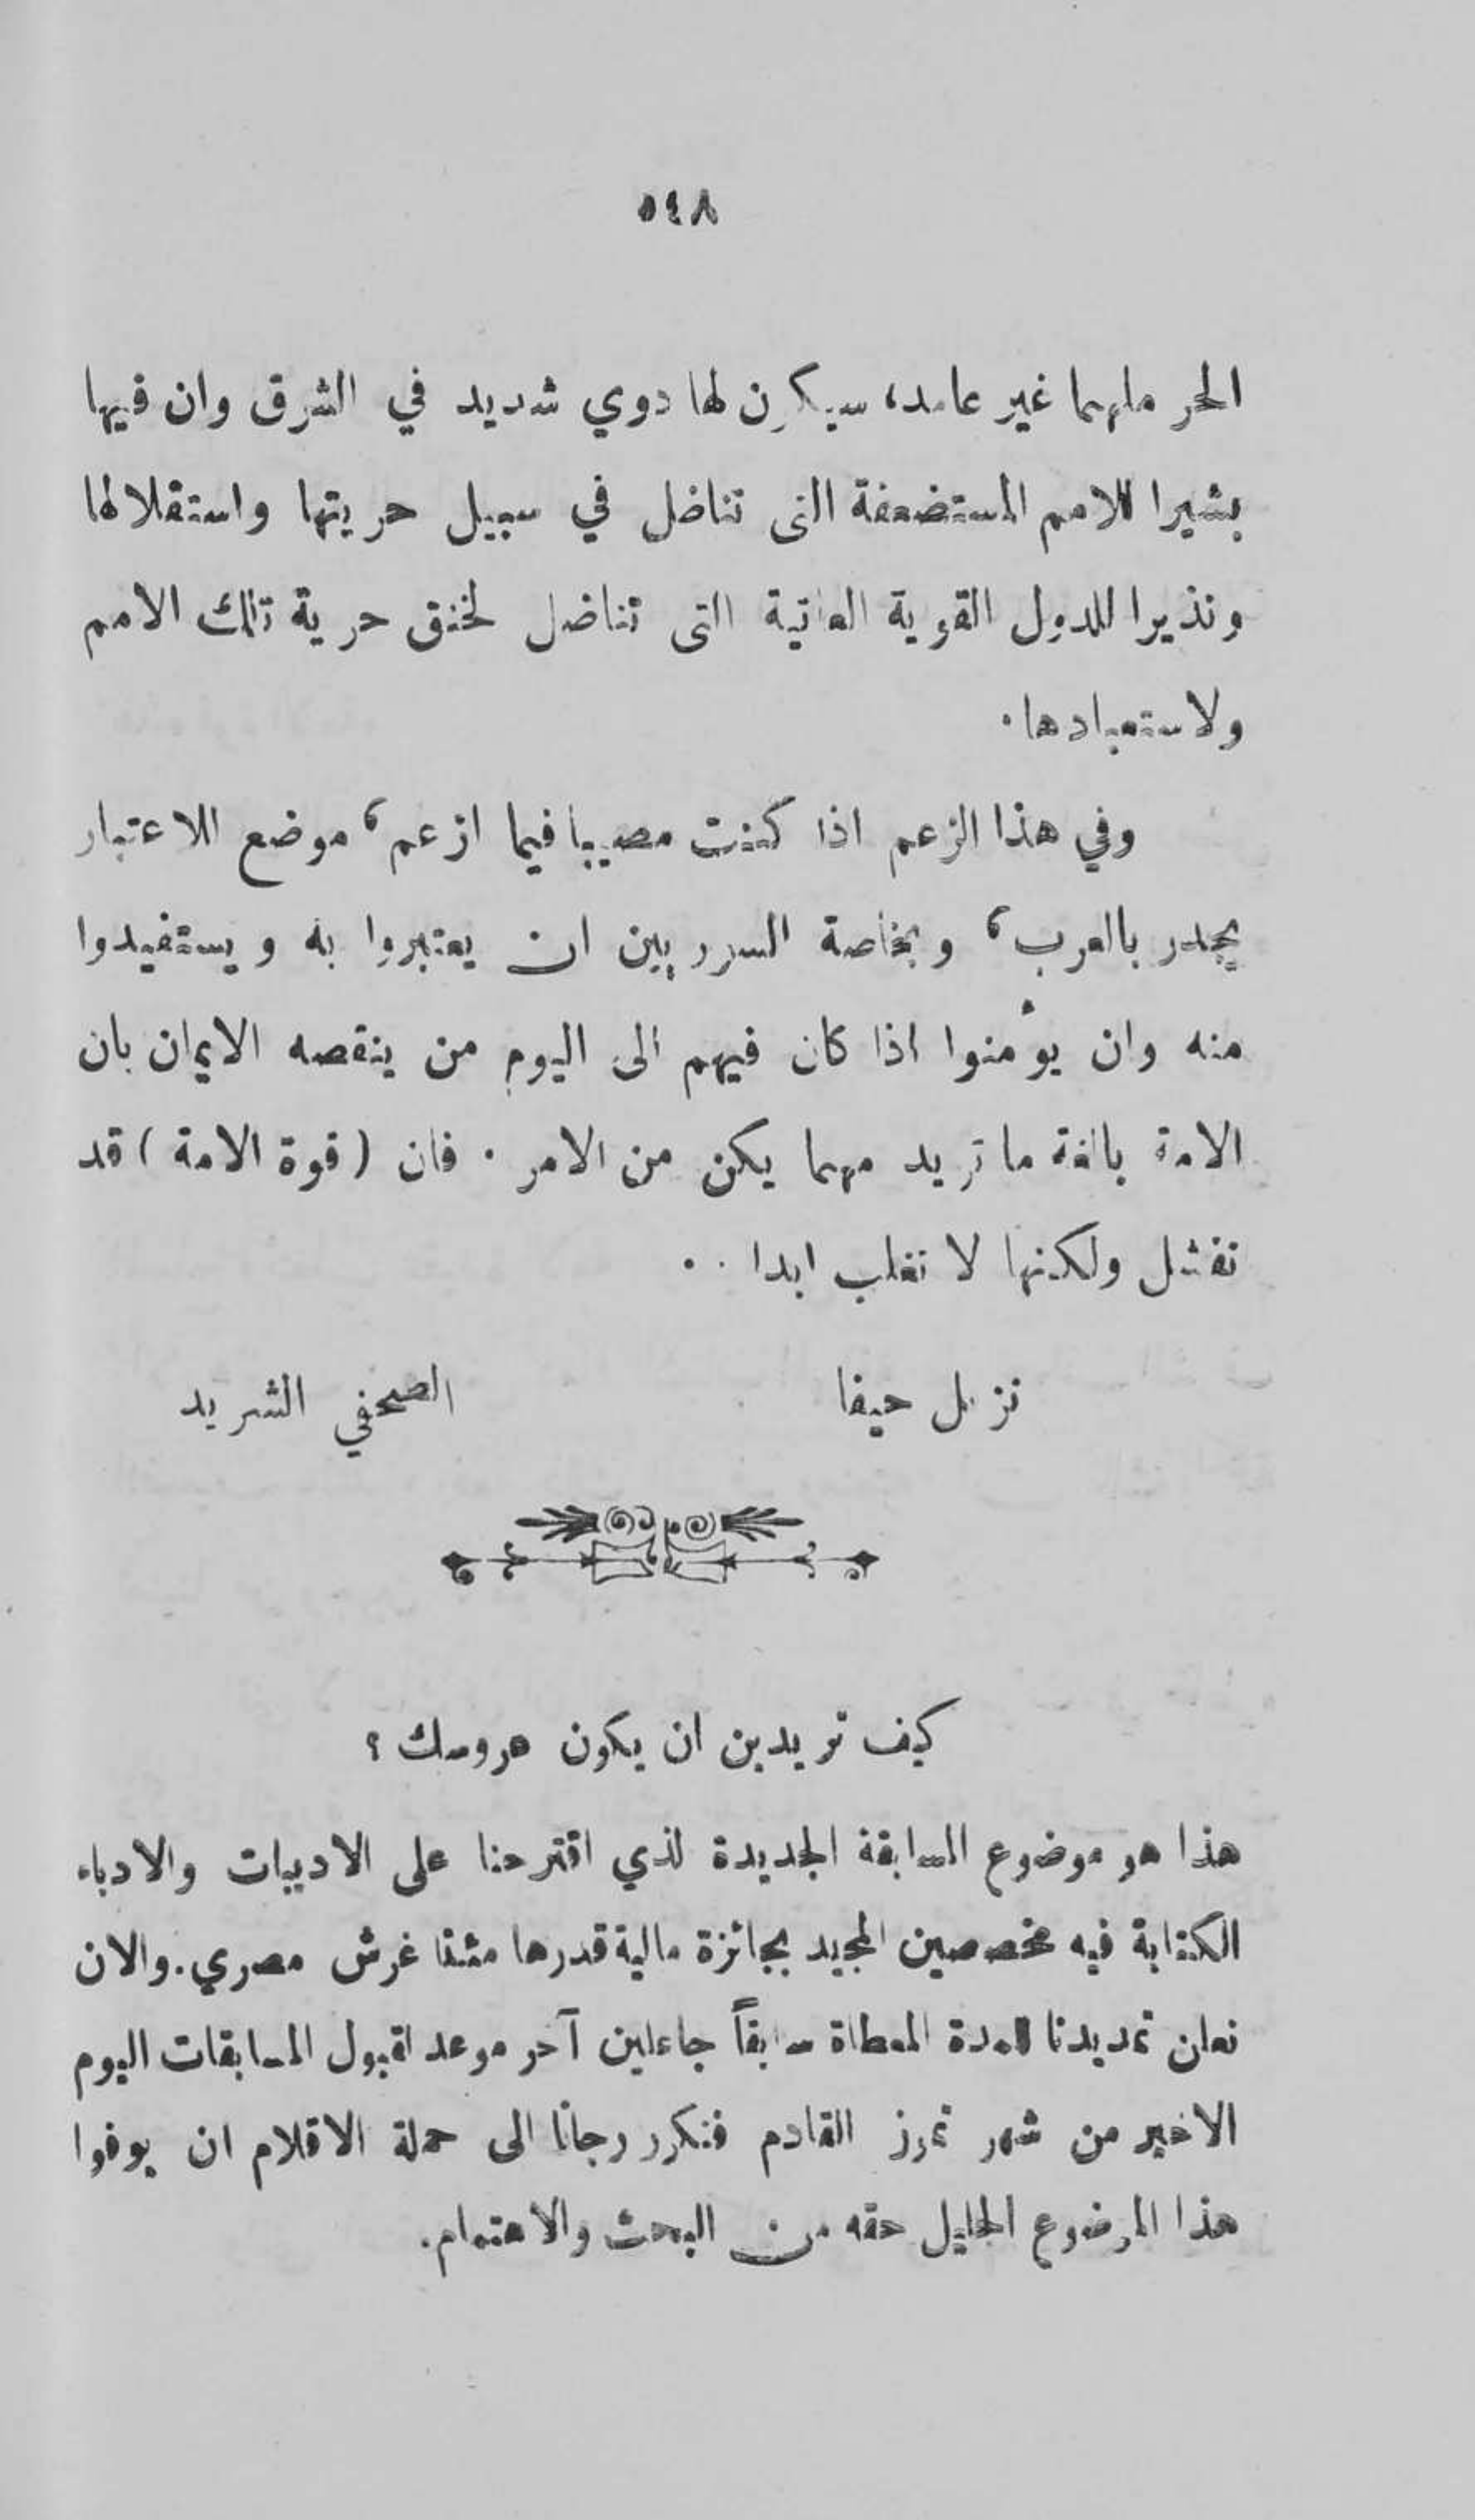 ٥٤٨
الحر ملهما غير عامد، سيكون لها دوي شديد في الشرق وان فيها
بشيرا للامم المستضعفة التى تناضل في سبيل حريتها واستقلالها
ونذيرا للدول القوية العاتية التى تناضل لخنق حرية تلك الامم
ولاستعبادها.
وفي هذا الزعم اذا كنت مصيبا فيما ازعم، موضع للاعتبار
يجدر بالعرب، وبخاصة السوريين ان يعتبروا به ويستفيدوا
منه وان يؤمنوا اذا كان فيهم الى اليوم من ينقصه الايمان بان
الامة بالغة ما تريد مهما يكن من الامر . فان (قوة الامة) قد
تفشل ولكنها لا تغلب ابدا . .
نزيل حيفا الصحفي الشريد
كيف تريدين ان يكون عروسك ؟
هذا هو موضوع المسابقة الجديدة لذي اقترحنا على الاديبات والادباء
الكتابة فيه مخصصين المجيد بجائزة مالية قدرها مئتا غرش مصري. والان
نعلن تمديدنا المدة المعطاة سابقاً جاعلين آخر موعد لقبول المسابقات اليوم
الاخير من شهر تموز القادم فنكرر رجانا الى حملة الاقلام ان يوفوا
هذا الموضوع الجليل حقه من البحث والاهتمام.